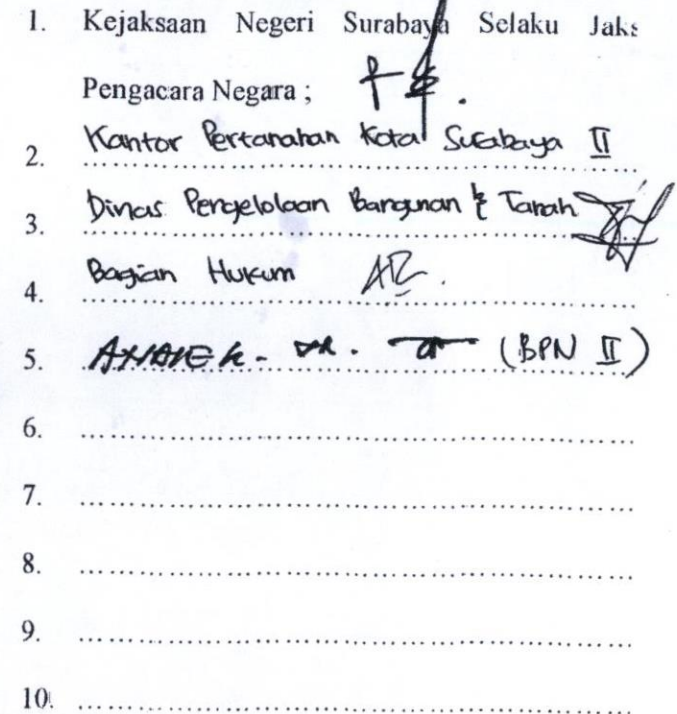 1. Kejaksaan Negeri Surabaya Selaku Jaks
Pengacara Negara ;
2. Kantor Pertanahan Kota Surabaya II
3. Dinas Pengelolaan Bangunan & Tanah
4. Bagian Hukum
5. (BPN II)
6.
7.
8.
9.
10.